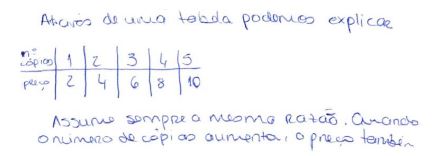 Através de uma tabela podemos explicar
nº
cópias | 1 | 2 | 3 | 4 | 5
preço | 2 | 4 | 6 | 8 | 10
Assume sempre a mesma razão. Quando
o número de cópias aumenta, o preço também